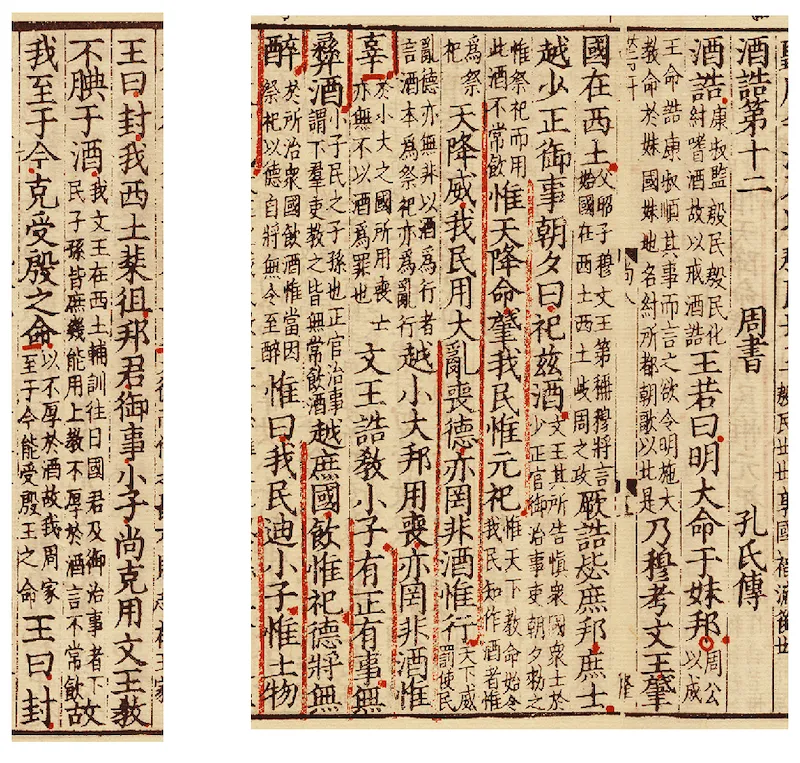 酒誥第十二　周書　孔氏傳
酒誥康叔監殷民殷民化紂嗜酒故以戒酒誥王若曰明大命于妹邦周公以成
王命誥康叔順其事而言之欲令明施大教命於妹國妹地名紂所都朝歌以北是乃穆考文王肇
國在西土父昭子穆文王第稱穆將言始國在西土西土岐周之政厥誥毖庶邦庶士
越少正御事朝夕曰祀茲酒文王其所告慎衆國衆士於少正官御治事吏朝夕勑之
惟祭祀而用此酒不常飲惟天降命肇我民惟元祀惟天下教命始令我民知作酒者惟
為祭祀天降威我民用大亂喪德亦罔非酒惟行天下威罰使民
亂德亦無非以酒為行者言酒本為祭祀亦為亂行越小大邦用喪亦罔非酒惟
辜於小大之國所用喪亡亦無不以酒為罪也文王誥教小子有正有事無
彝酒小子民之子孫也正官治事謂下羣吏教之皆無常飲酒越庶國飲惟祀德將無
醉於所治衆國飲酒惟當因祭祀以德自將無令至醉惟曰我民迪小子惟土物
王曰封我西土棐徂邦君御事小子尚克用文王教
不腆于酒我文王在西土輔訓往日國君及御治事者下民子孫皆庶幾能用上教不厚於酒言不常飲故
我至于今克受殷之命以不厚於酒故我周家至于今能受殷王之命王曰封